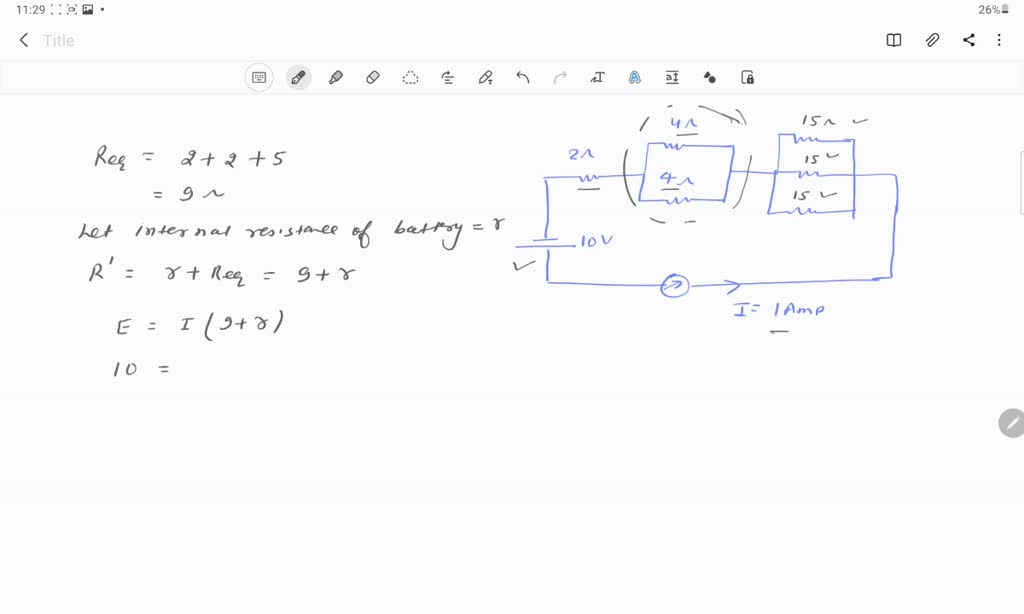 11:29
26%
Title
Req = 2 + 2 + 5
= 9 Ω
Let internal resistance of battery = r
R' = r + Req = 9 + r
E = I (9 + r)
10 =
4Ω
15Ω
2Ω
15
4Ω
15
10V
I = 1 Amp